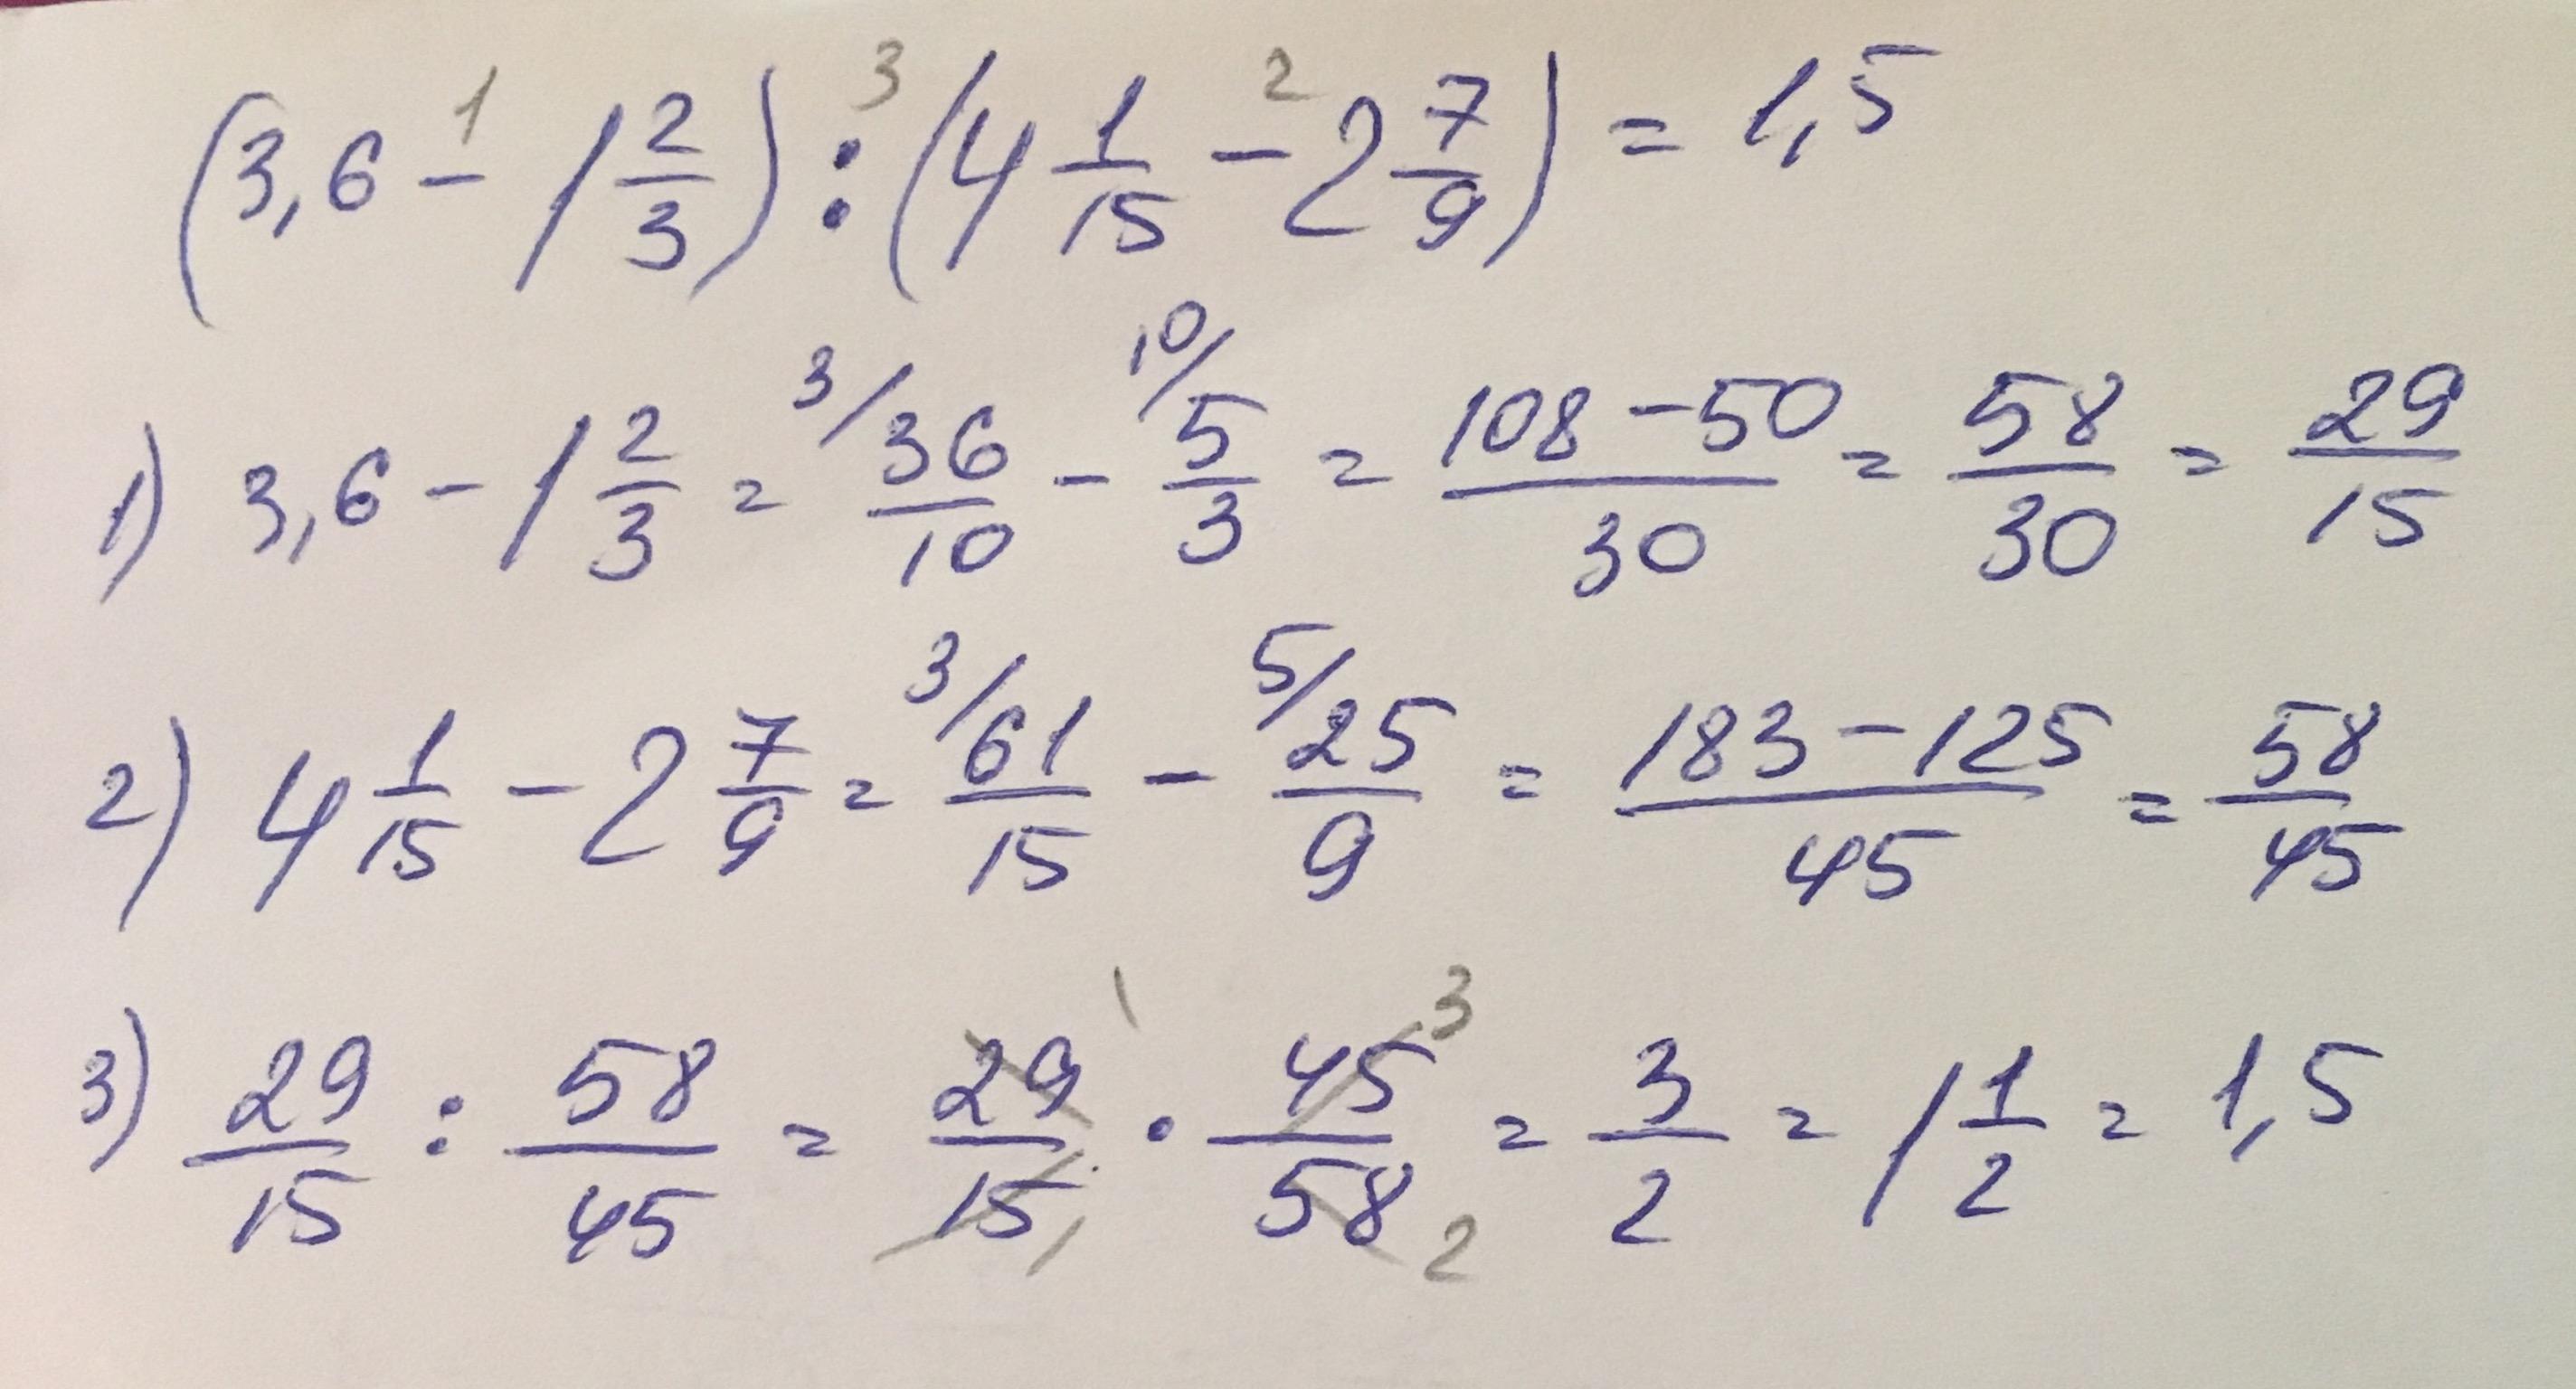 (3,6 -¹ 1 2/3) :³ (4 1/15 -² 2 7/9) = 1,5
1) 3,6 - 1 2/3 = ³/ 36/10 - ¹⁰/ 5/3 = (108 - 50)/30 = 58/30 = 29/15
2) 4 1/15 - 2 7/9 = ³/ 61/15 - ⁵/ 25/9 = (183 - 125)/45 = 58/45
3) 29/15 : 58/45 = 29¹/15₁ · 45³/58₂ = 3/2 = 1 1/2 = 1,5